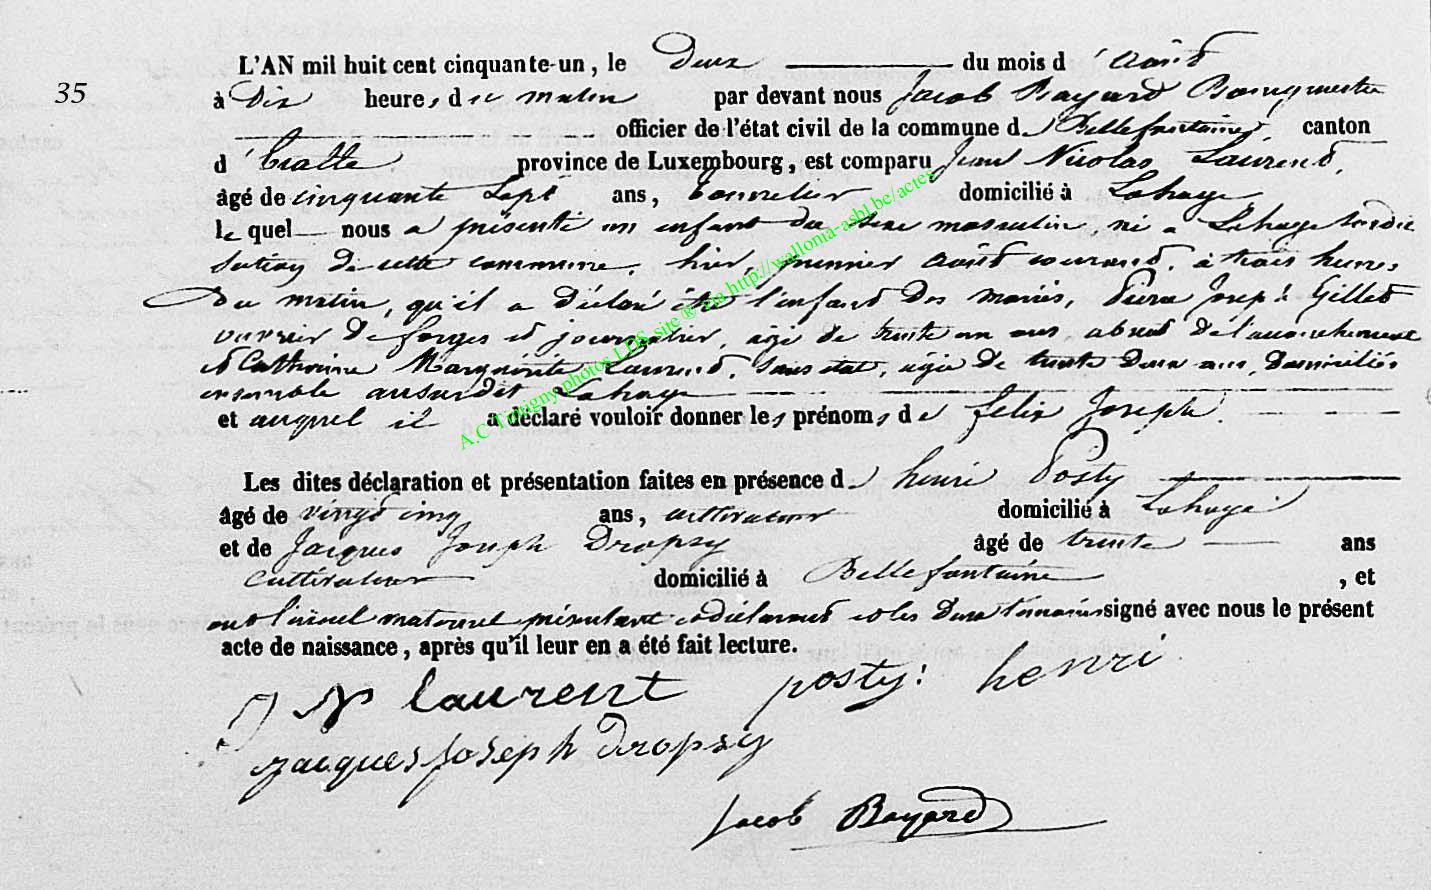 35
L'AN mil huit cent cinquante-un, le Deux du mois d'Août
à Dix heures du matin par devant nous Jacob Bayard Bourgmestre
officier de l'état civil de la commune de Bellefontaine, canton
d' Etalle province de Luxembourg, est comparu Jean Nicolas Laurent,
âgé de cinquante Sept ans, domicilié à Lahage,
lequel nous a présenté un enfant du sexe masculin, né à Lahage
section de cette commune, hier, premier Août courant, à trois heures
Du matin, qu'il a déclaré être l'enfant des mariés, Pierre Joseph Gillet
ouvrier de forges et journalier, âgé de trente un ans, absent de l'accouchement
et Catherine Marguérite Laurent, Sans état, âgée de trente Deux ans, Domiciliés
ensemble au susdit Lahage
et auquel il a déclaré vouloir donner les prénoms de felix Joseph
Les dites déclaration et présentation faites en présence de henri Posty
âgé de vingt cinq ans, cultivateur domicilié à Lahage
et de Jacques Joseph Dropsy âgé de trente ans
Cultivateur domicilié à Bellefontaine, et
ont l'aieul maternel présentant et déclarant et les Deux témoins signé avec nous le présent
acte de naissance, après qu'il leur en a été fait lecture.
J N laurent posty: henri
jacques joseph dropsy
Jacob Bayard
A.C Tintigny photos LDS, site ® via http://wallonia-asbl.be/actes